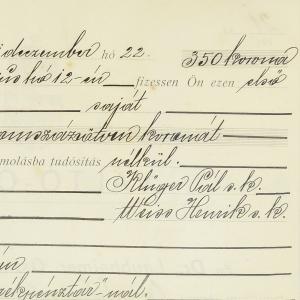 deczember hó 22. 350 korona
hó 12-én fizessen Ön ezen első
saját
romszázötven koronát
molásba tudósítás nélkül.
Klüger Pál s. k.
Weiss Henrik s. k.
én
ékpénztár"-nál.